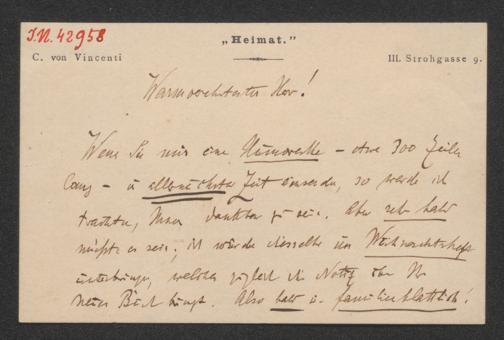 J.N. 42958
„Heimat.“
C. von Vincenti
III. Strohgasse 9.
Warmverehrtester Herr!
Wenn Sie mir eine Humoreske – etwa 300 Zeilen
lang – in allernächster Zeit einsenden, so werde ich
trachten, Ihnen dankbar zu sein. Aber sehr bald
müßte es sein; ich würde dieselbe im Weihnachtsheft
unterbringen, welches zugleich die Notiz über Ihr
neues Buch bringt. Also bald u. familienblattlich!